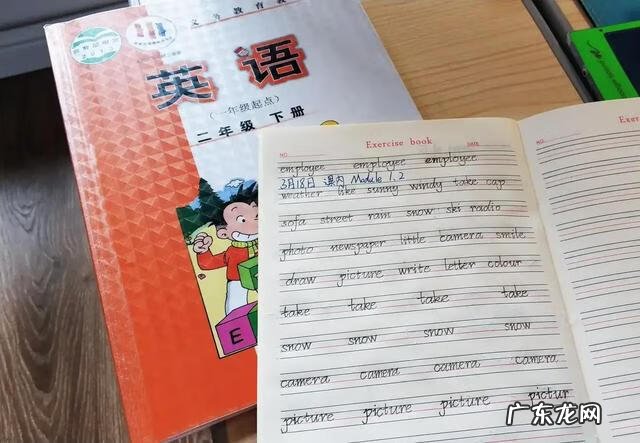 义务教育教
英语
(一年级起点)
二年级 下册
E
NO.
Exercise book
DATE.
employee employee employee
3月18日 课内 Module 1.2
weather like sunny windy take cap
sofa street ram snow ski radio
photo newspaper little camera smile
draw picture write letter colour
take take take take
snow snow snow snow
camera camera camera camera
picture picture picture pictur
NO.
Exercise
广东龙网